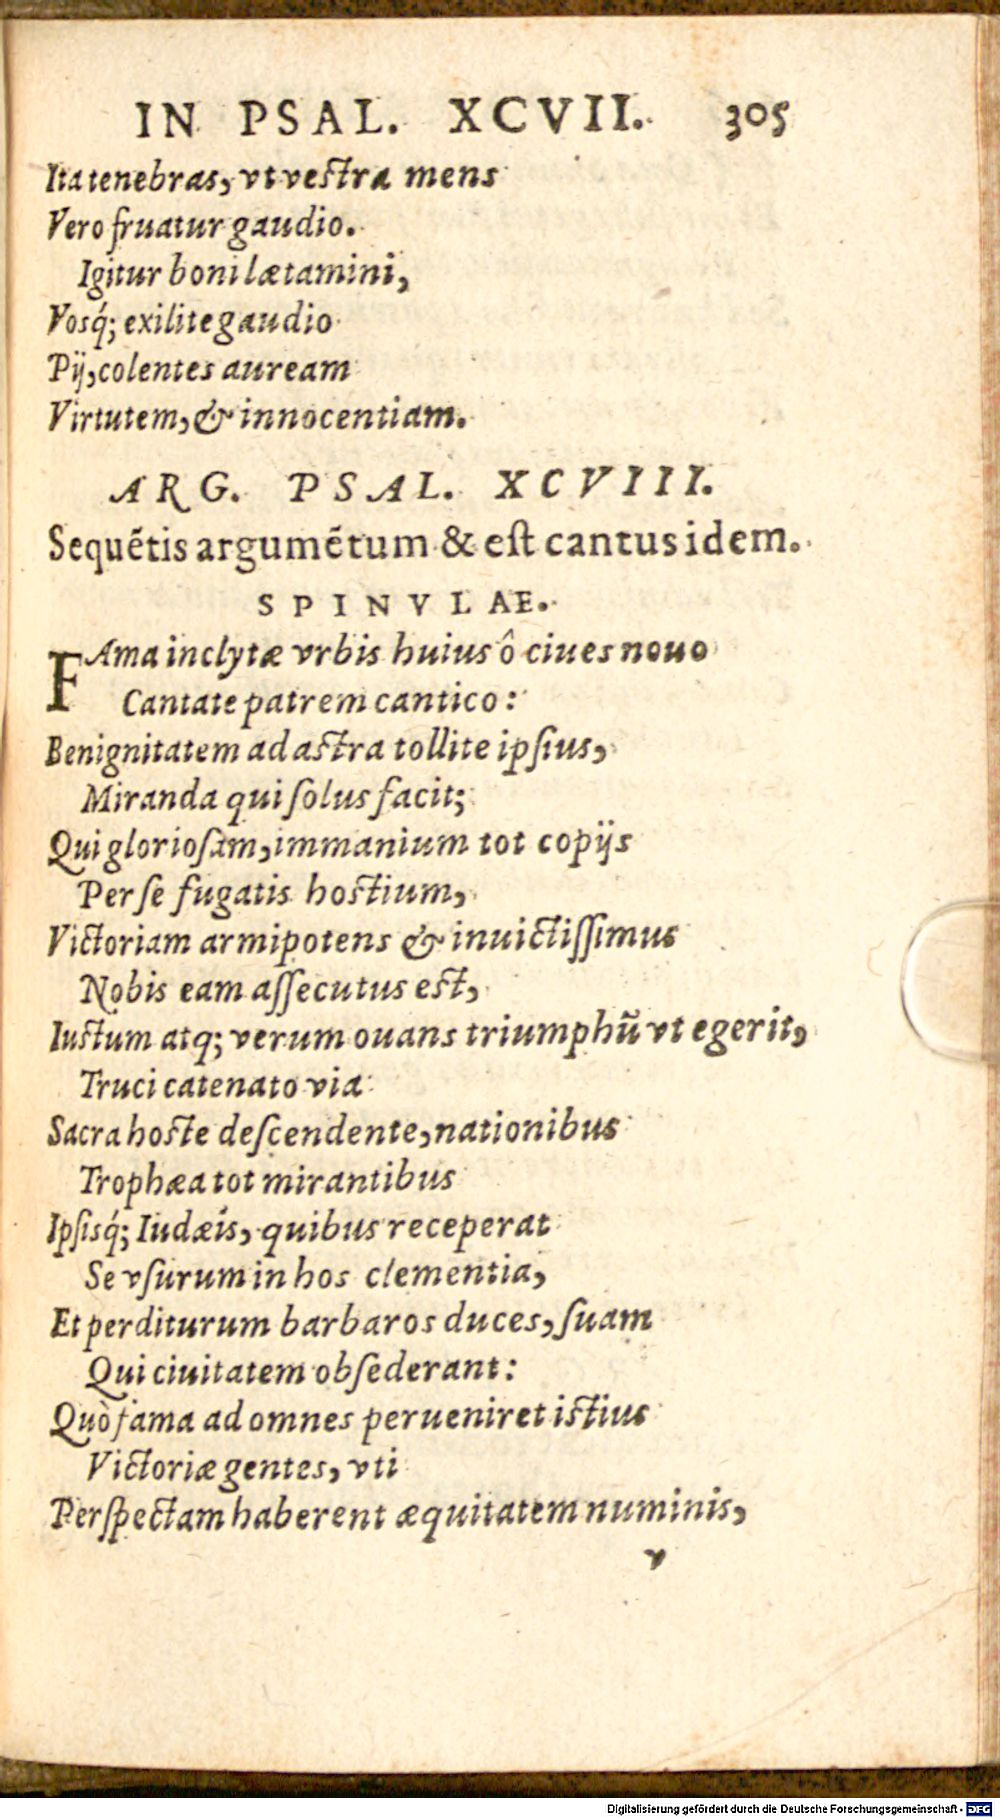 IN PSAL. XCVII. 305
Ita tenebras, vt vestra mens
Vero fruatur gaudio.
Igitur boni lætamini,
Vosq́; exilite gaudio
Pij, colentes auream
Virtutem, & innocentiam.
ARG. PSAL. XCVIII.
Sequẽtis argumẽtum & est cantus idem.
SPINVLAE.
FAma inclytæ vrbis huius ô ciues nouo
Cantate patrem cantico:
Benignitatem ad astra tollite ipſius,
Miranda qui ſolus facit;
Qui glorioſam, immanium tot copijs
Per ſe fugatis hostium,
Victoriam armipotens & inuictiſſimus
Nobis eam aſſecutus est,
Iustum atq; verum ouans triumphũ vt egerit,
Truci catenato via
Sacra hoste deſcendente, nationibus
Trophæa tot mirantibus
Ipſisq́; Iudæis, quibus receperat
Se vſurum in hos clementia,
Et perditurum barbaros duces, ſuam
Qui ciuitatem obſederant:
Quò fama ad omnes perueniret istius
Victoriæ gentes, vti
Perſpectam haberent æquitatem numinis,
v
Digitalisierung gefördert durch die Deutsche Forschungsgemeinschaft - DFG